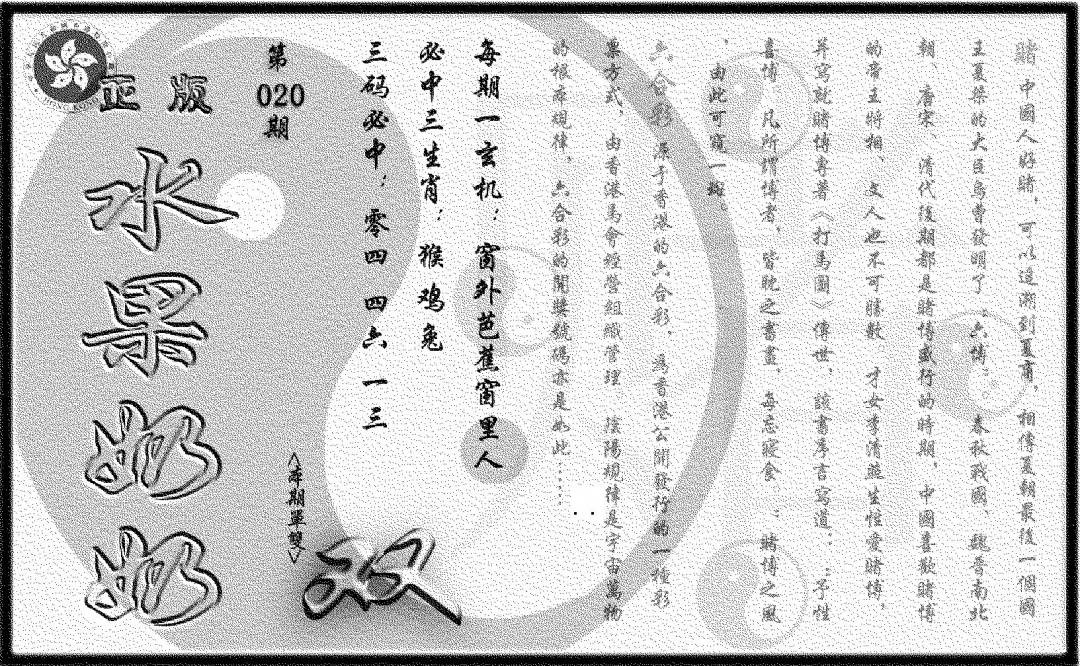 賭 中國人好賭，可以追溯到夏商，相傳夏朝最後一個國
王夏桀的大臣烏曹發明了：六博。 春秋戰國、魏晉南北
朝、唐宋、清代後期都是賭博盛行的時期，中國喜歡賭博
的帝王將相、文人也不可勝數 才女李清照生性愛賭博，
并寫就賭博專著《打馬圖》傳世、該書序言寫道：：予性
喜博，凡所謂博者，皆耽之晝, 每忘寢食 。：賭博之風
，由此可窺一斑。
六合彩 源于香港的六合彩， 為香港公開發行的一種彩
票方式，由香港馬會經營組織管理。陰陽規律是宇宙萬物
的根本規律，六合彩的開獎號碼亦是如此……
每期一玄机：窗外芭蕉窗里人
必中三生肖：猴鸡兔
三码必中：零四 四六 一三
第
020
期
正版
水果奶奶
<本期單雙>
双